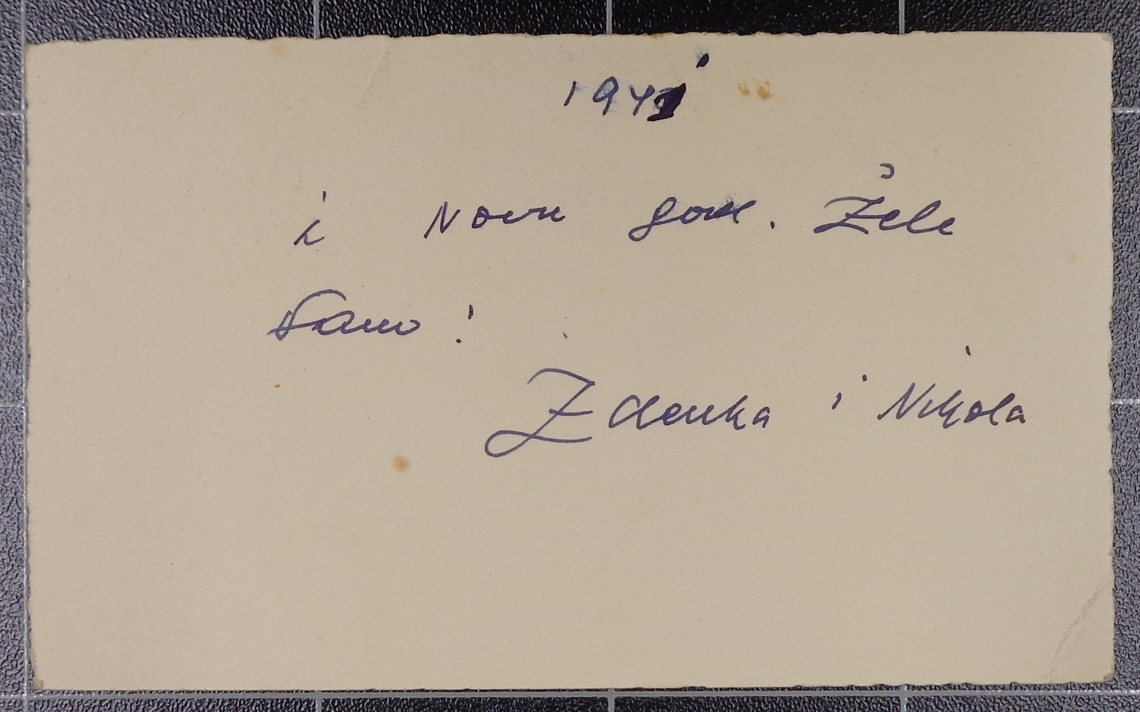 1941
i Novu god. Žele
Vam !
Zdenka i Nikola